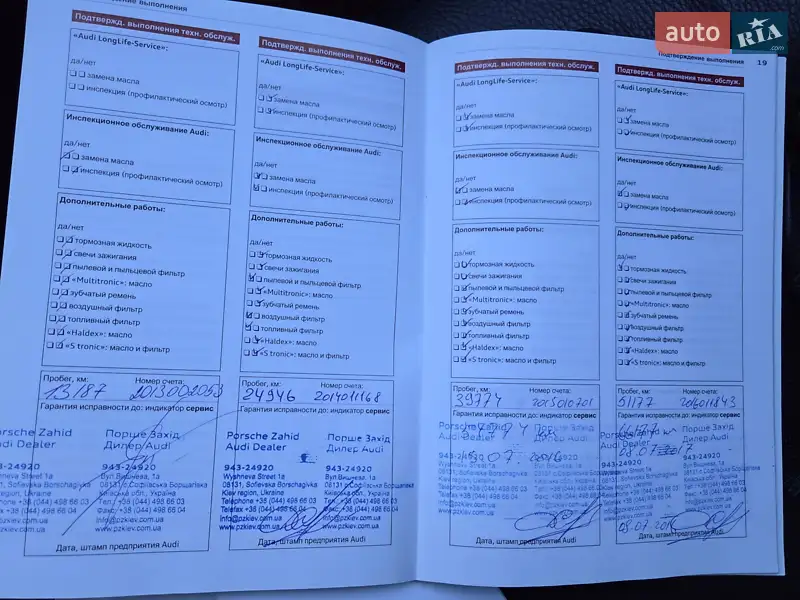 auto RIA .com
Подтверждение выполнения 19
Подтвержд. выполнения техн. обслуж.
«Audi LongLife-Service»:
да/нет
замена масла
инспекция (профилактический осмотр)
Инспекционное обслуживание Audi:
да/нет
замена масла
инспекция (профилактический осмотр)
Дополнительные работы:
да/нет
тормозная жидкость
свечи зажигания
пылевой и пыльцевой фильтр
«Multitronic»: масло
зубчатый ремень
воздушный фильтр
топливный фильтр
«Haldex»: масло
«S tronic»: масло и фильтр
Пробег, км: Номер счета:
13187 2013002053
Гарантия исправности до: индикатор сервис
Porsche Zahid Порше Захід
Audi Dealer Дилер Audi
943-24920 943-24920
Вул Вишнева, 1а
info@pzkiev.com.ua
www.pzkiev.com.ua
Дата, штамп предприятия Audi
Подтвержд. выполнения техн. обслуж.
«Audi LongLife-Service»:
да/нет
замена масла
инспекция (профилактический осмотр)
Инспекционное обслуживание Audi:
да/нет
замена масла
инспекция (профилактический осмотр)
Дополнительные работы:
да/нет
тормозная жидкость
свечи зажигания
пылевой и пыльцевой фильтр
«Multitronic»: масло
зубчатый ремень
воздушный фильтр
топливный фильтр
«Haldex»: масло
«S tronic»: масло и фильтр
Пробег, км: Номер счета:
24946 2014011168
Гарантия исправности до: индикатор сервис
Porsche Zahid Порше Захід
Audi Dealer Дилер Audi
943-24920 943-24920
Wyshneva Street 1a Вул Вишнева, 1а
08131, Sofievska Borschagivka
Kiev region, Ukraine Київська обл., Україна
Telephone +38 (044) 498 66 03
Telefax +38 (044) 498 66 04
info@pzkiev.com.ua
www.pzkiev.com.ua
Дата, штамп предприятия Audi
Подтвержд. выполнения техн. обслуж.
«Audi LongLife-Service»:
да/нет
замена масла
инспекция (профилактический осмотр)
Инспекционное обслуживание Audi:
да/нет
замена масла
инспекция (профилактический осмотр)
Дополнительные работы:
да/нет
тормозная жидкость
свечи зажигания
пылевой и пыльцевой фильтр
«Multitronic»: масло
зубчатый ремень
воздушный фильтр
топливный фильтр
«Haldex»: масло
«S tronic»: масло и фильтр
Пробег, км: Номер счета:
39774 2015010701
Гарантия исправности до: индикатор сервис
Audi Dealer Дилер Audi
943-24920
info@pzkiev.com.ua
www.pzkiev.com.ua
Дата, штамп предприятия Audi
Подтвержд. выполнения техн. обслуж.
«Audi LongLife-Service»:
да/нет
замена масла
инспекция (профилактический осмотр)
Инспекционное обслуживание Audi:
да/нет
замена масла
инспекция (профилактический осмотр)
Дополнительные работы:
да/нет
тормозная жидкость
свечи зажигания
пылевой и пыльцевой фильтр
«Multitronic»: масло
зубчатый ремень
воздушный фильтр
топливный фильтр
«Haldex»: масло
«S tronic»: масло и фильтр
Пробег, км: Номер счета:
51177 2016011843
Гарантия исправности до: индикатор сервис
Дилер Audi
943-24920
Дата, штамп предприятия Audi